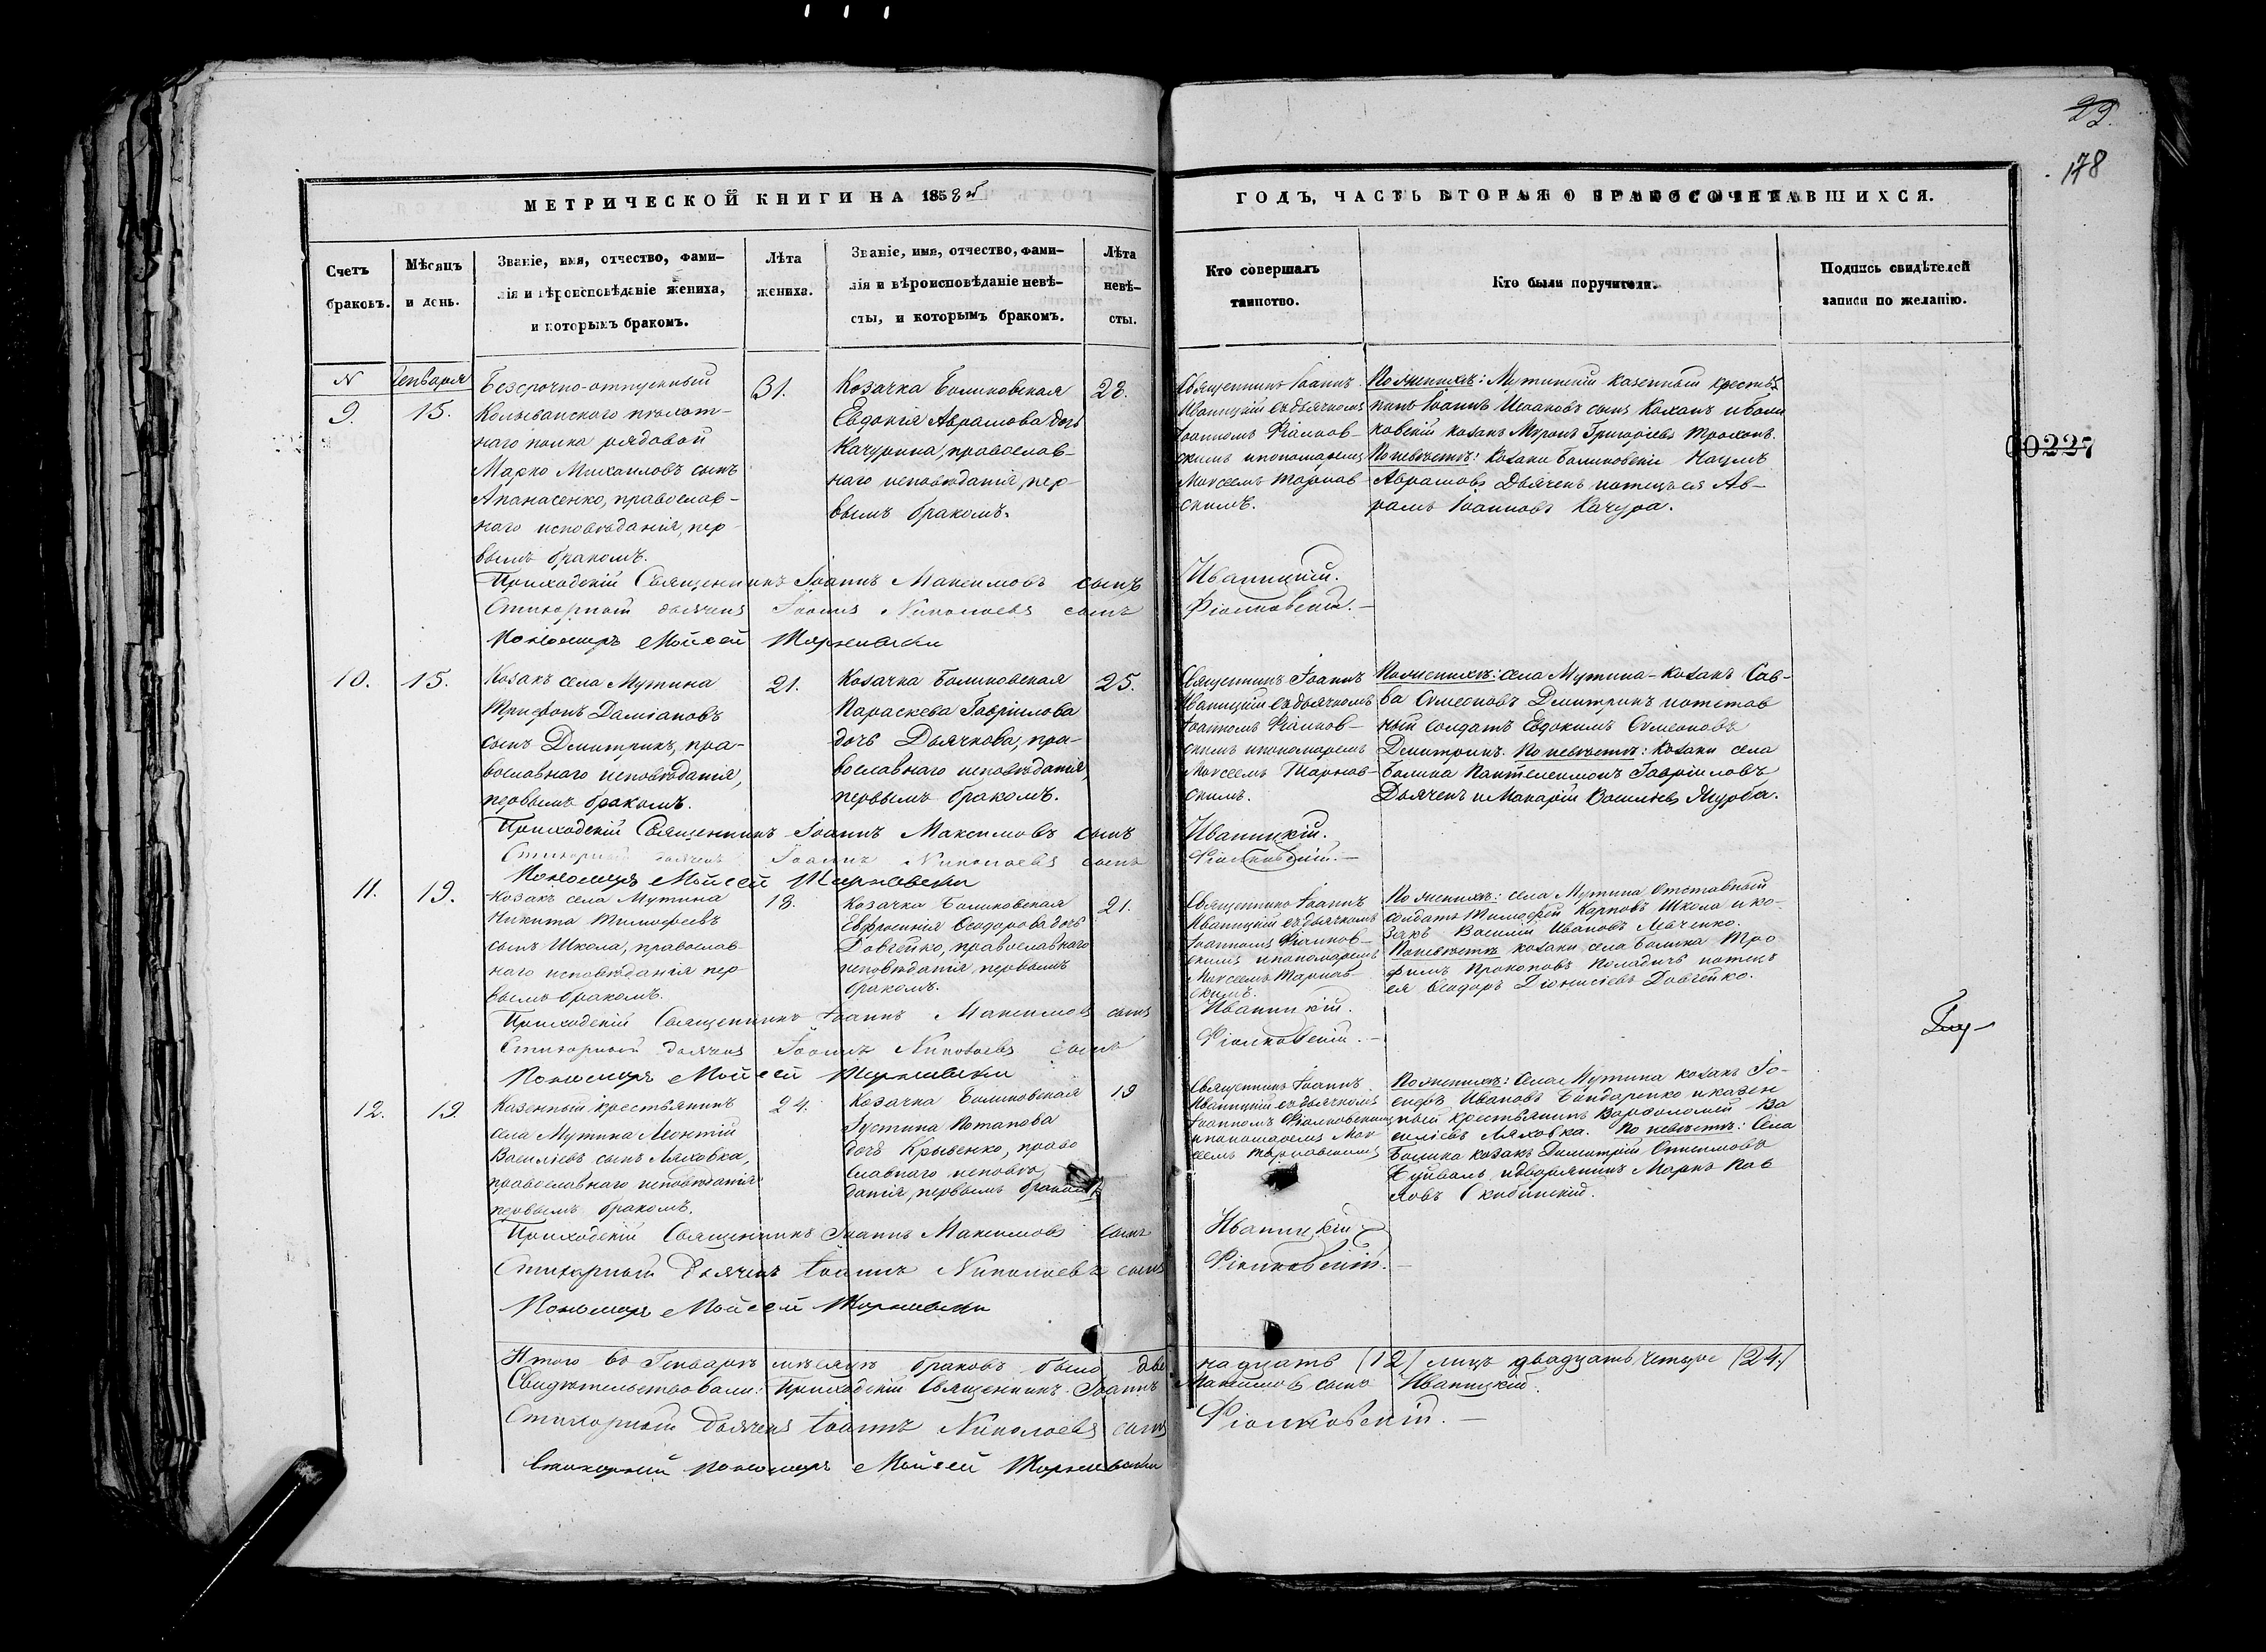 29.
178
МЕТРИЧЕСКОЙ КНИГИ НА 1858 й
ГОДЪ, ЧАСТЬ ВТОРАЯ О БРАКОСОЧЕТАВШИХСЯ.
Счетъ браковъ.
Мѣсяцъ и день.
Званіе, имя, отчество, фами-
лія и вѣроисповѣданіе жениха,
и которымъ бракомъ.
Лѣта
жениха.
Званіе, имя, отчество, фами-
лія и вѣроисповѣданіе невѣ-
сты, и которымъ бракомъ.
Лѣта
невѣ-
сты.
Кто совершалъ
таинство.
Кто были поручители.
Подпись свидѣтелей
записи по желанію.
00227
N
Генваря
9.
15.
Безсрочно-отпускный
Колыванского пѣхот-
наго полка рядовой
Марко Михаиловъ сынъ
Апанасенко, православ-
наго исповѣданія, пер-
вымъ бракомъ.
31.
Козачка Боликовская
Евдокія Аврамова дочь
Качурина, православ-
наго исповѣданія, пер-
вымъ бракомъ.
22.
Священникъ Іоаннъ
Иваницкій съ дьячкомъ
Іоанномъ Фіалков-
скимъ и пономаремъ
Моисеемъ Тарнав-
скимъ.
По женихѣ: Мутинскій казенный крестья-
нинъ Іоаннъ
козакъ Миронъ Григоріевъ
По невѣстѣ: козаки Боликовскіе Наумъ
Аврамовъ Дьяченъ и отецъ ея Ав-
рамъ Іоанновъ Качура.
Приходскій Священникъ Іоаннъ Максимовъ сынъ Иваницкій.
Стихарный дьячекъ Іоаннъ Николаевъ сынъ Фіолковскій.
Пономарь Мойсей Тарнавски
10.
15.
Козакъ села Мутина
Трифонъ Даміановъ
сынъ Дмитрикъ, пра-
вославнаго исповѣданія,
первымъ бракомъ.
21.
Козачка Боликовская
Параскева Гавріилова
дочь Дьячкова, пра-
вославнаго исповѣданія,
первымъ бракомъ.
25.
Священникъ Іоаннъ
Иваницкій съ дьячкомъ
Іоанномъ Фіалков-
скимъ и пономаремъ
Моисеемъ Тарнав-
скимъ.
По женихѣ: села Мутина козакъ Сав-
ва Сѵмеоновъ Дмитрикъ и отстав
ный солдатъ Евдокимъ Сѵмеоновъ
Дмитрикъ. По невѣстѣ: козаки села
Болика Пантелеимонъ Гавріиловъ
Дьяченъ и Макарій Василіевъ Журба.
Приходскій Священникъ Іоаннъ Максимовъ сынъ Иваницкій.
Стихарный дьячекъ Іоаннъ Николаевъ сынъ Фіолковскій.
Пономарь Мойсей Тарнавски
11.
19.
Козакъ села Мутина
Никита Тимофеевъ
сынъ Школа, православ-
наго исповѣданія пер-
вымъ бракомъ.
18.
Козачка Боликовская
Евфросинія Ѳеодорова дочь
Довгейко, православнаго
исповѣданія, первымъ
бракомъ.
21.
Священникъ Іоаннъ
Иваницкій съ дьячкомъ
Іоанномъ Фіалков-
скимъ и пономаремъ
Моисеемъ Тарнав-
скимъ.
По женихѣ: села Мутина отставный
солдатъ Тимофей Карповъ Школа и ко-
закъ Василій Ивановъ
По невѣстѣ козаки села Болика Тро
фимъ Прокоповъ и отецъ
ея Ѳеодоръ Діонисіевъ Довгейко.
Приходскій Священникъ Іоаннъ Максимовъ сынъ Иваницкій.
Стихарный дьячекъ Іоаннъ Николаевъ сынъ Фіолковскій.
Пономарь Мойсей Тарнавски
12.
19.
Казенный крестьянинъ
села Мутина Леонтій
Василіевъ сынъ Ляховка,
православнаго исповѣданія
первымъ бракомъ.
24.
Козачка Боликовская
Іустина Потапова
дочь Крывенко, право
славнаго исповѣ
данія, первымъ бракомъ
19
Священникъ Іоаннъ
Иваницкій съ дьячкомъ
Іоанномъ Фіалковскимъ
и пономаремъ Мои
сеемъ Тарнавскимъ
По женихѣ: села Мутина козакъ Іо-
сифъ Ивановъ Бондаренко и казен
ный крестьянинъ Варфоломей Ва
силіевъ Ляховка. По невѣстѣ: села
Болика козакъ Димитрій
и дворянинъ Марко Пав
ловъ Скибинскій.
Приходскій Священникъ Іоаннъ Максимовъ сынъ Иваницкій
Стихарный Дьячекъ Іоаннъ Николаевъ сынъ Фіолковскій.
Пономарь Мойсей Тарнавски
Итого въ Генварѣ мѣсяцѣ браковъ было двѣ надцать (12) лицъ двадцать четыре (24.)
Свидѣтельствовали: Приходскій Священникъ Іоаннъ Максимовъ сынъ Иваницкій.
Стихарный дьячекъ Іоаннъ Николаевъ сынъ Фіолковскій.
Стихарный пономарь Мойсей Тарнавски